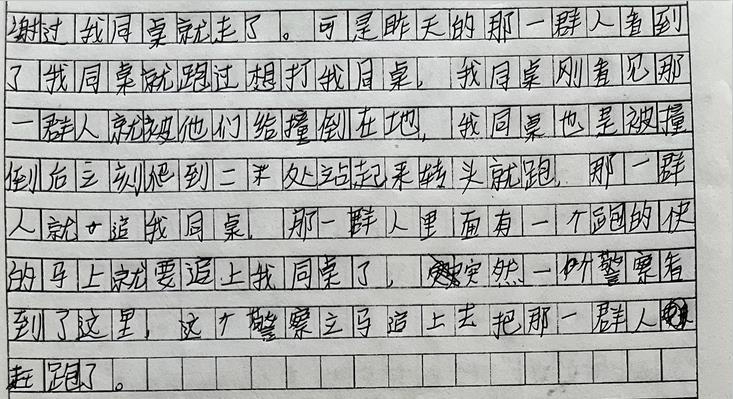 谢过我同桌就走了。可是昨天的那一群人看到
了我同桌就跑过想打我同桌，我同桌刚看见那
一群人就被他们给撞倒在地，我同桌也是被撞
倒后立刻到二米处站起来转头就跑，那一群
人就追我同桌，那一群人里面有一个跑的快
的马上就要追上我同桌了，突然一个警察看
到了这里，这个警察立马追上去把那一群人
赶跑了。